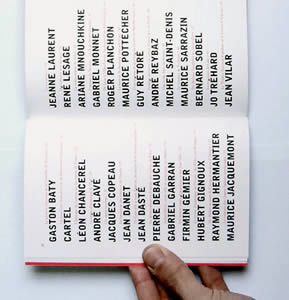 GASTON BATY
CARTEL
LÉON CHANCEREL
ANDRÉ CLAVÉ
JACQUES COPEAU
JEAN DANET
JEAN DASTÉ
PIERRE DEBAUCHE
GABRIEL GARRAN
FIRMIN GÉMIER
HUBERT GIGNOUX
RAYMOND HERMANTIER
MAURICE JACQUEMONT
JEANNE LAURENT
RENÉ LESAGE
ARIANE MNOUCHKINE
GABRIEL MONNET
ROGER PLANCHON
MAURICE POTTECHER
GUY RÉTORÉ
ANDRÉ REYBAZ
MICHEL SAINT-DENIS
MAURICE SARRAZIN
BERNARD SOBEL
JO TRÉHARD
JEAN VILAR